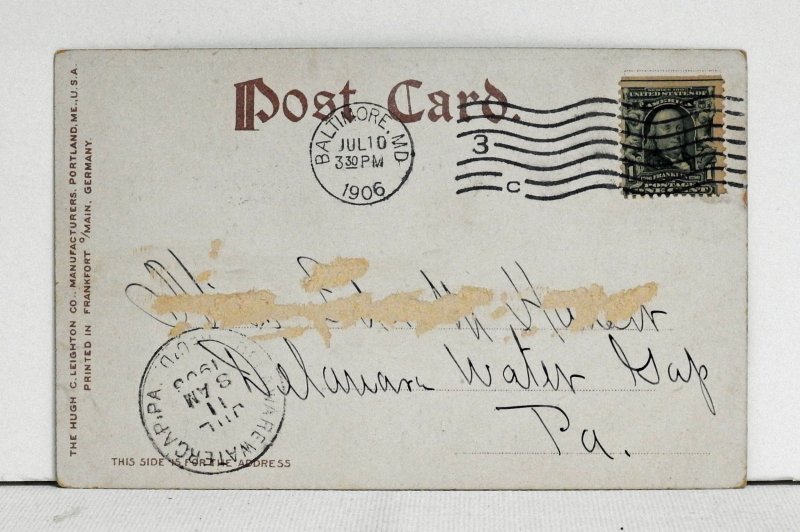 Post Card.
BALTIMORE, MD.
JUL 10
3 30 PM
1906
3
C
SERIES 1902
UNITED STATES OF
AMERICA
FRANKLIN
POSTAGE
ONE CENT
THE HUGH C. LEIGHTON CO., MANUFACTURERS, PORTLAND, ME., U.S.A.
PRINTED IN FRANKFORT o/MAIN, GERMANY.
Miss
Delaware Water Gap
Pa.
WATER GAP, PA.
JUL
11
8 AM
1906
THIS SIDE IS FOR THE ADDRESS